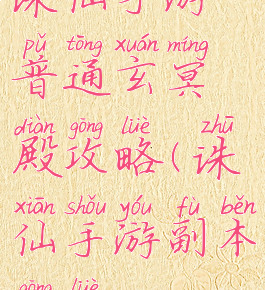 诛仙手游
pǔ tōng xuán míng
普通玄冥
diàn gōng lüè zhū
殿攻略(诛
xiān shǒu yóu fù běn
仙手游副本
gōng lüè